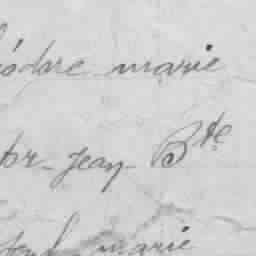 éodore marie
tor- Jean- Bte
marie